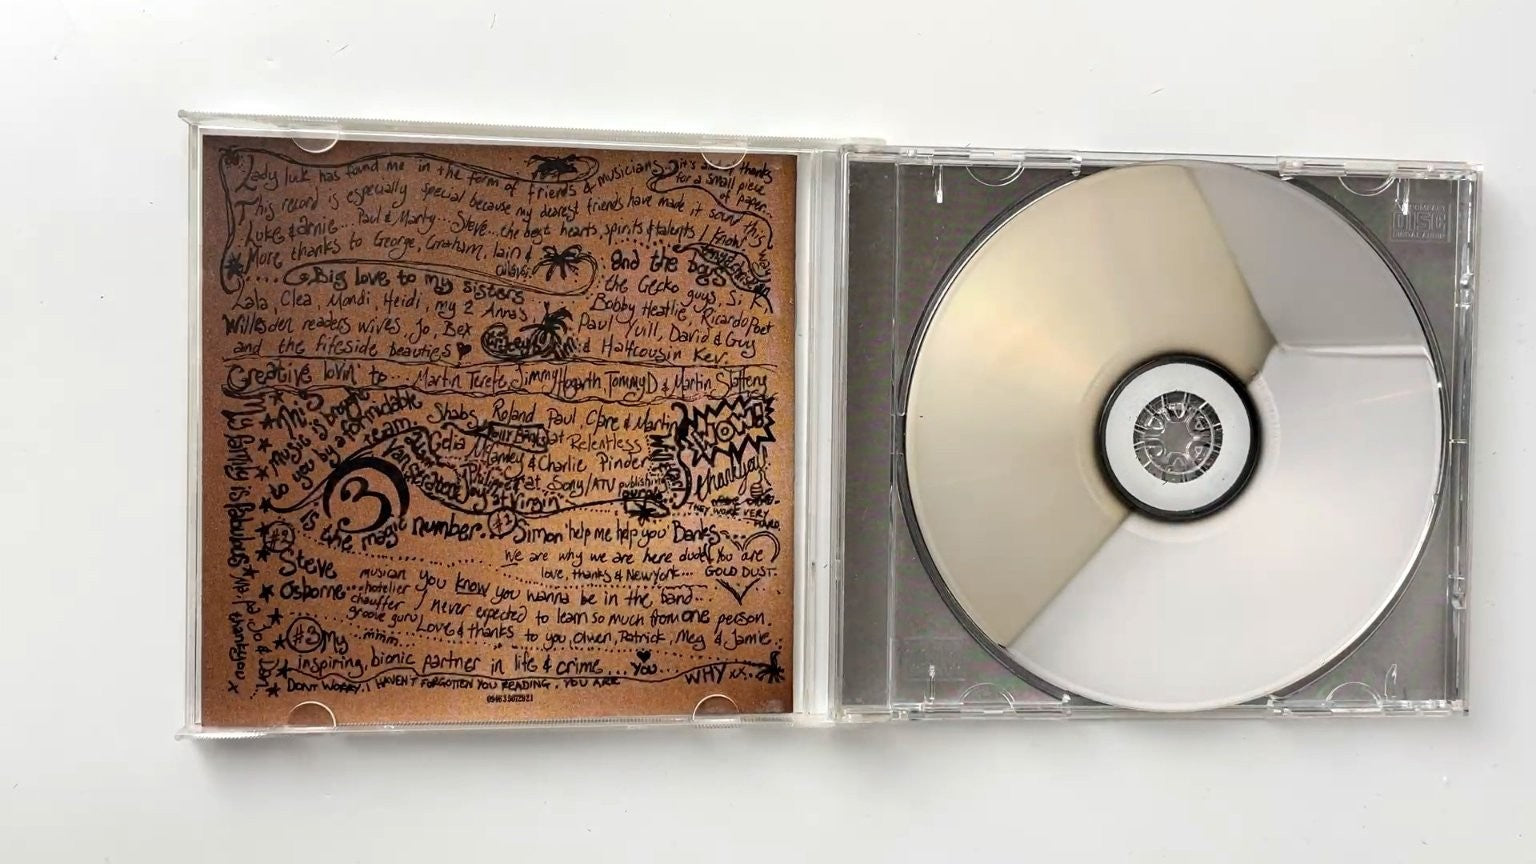 Lady luck has found me in the form of friends & musicians
This record is especially special because my dearest friends have made it sound this way
Luke & arnie... Paul & Marty... Steve... the best hearts, spirits & talents I know!
More thanks to George, Graham, Iain &
it's
thanks
for a small piece
of paper...
Big love to my sisters
Lala, Clea, Mondi, Heidi, my 2 Anna's
Willesden readers wives, Jo, Bex
and the fifeside beauties
and the boys
the Gecko guys, Si, K,
Bobby Heatlie, Ricardo Poet
Paul Yuill, David & Guy
& Halfcousin Kev.
Creative lovin' to... Martin Terefe, Jimmy Hogarth, Tommy D & Martin Slattery
This
Music is brought
to you by a formidable
team
Shabs, Roland Paul, Clare & Martin
at Relentless
& Charlie Pinder
at Sony/ATV publishing
Joy at Virgin
WOW!
WOW!
thankyou!
THEY WORK VERY
HARD.
My family is fabulous
3
is the magic number.
#1 Simon 'help me help you' Banks
We are why we are here dude! You are
love, thanks & New York... GOLD DUST.
#2
Steve
Osborne
musician
hotelier
chauffer
groove guru
mmm
you know you wanna be in the band...
I never expected to learn so much from one person.
Love & thanks to you, Owen, Patrick, Meg & Jamie
#3 My
inspiring, bionic partner in life & crime... YOU
DONT WORRY, I HAVEN'T FORGOTTEN YOU READING, YOU ARE WHY xx.
COMPACT
DISC
DIGITAL AUDIO